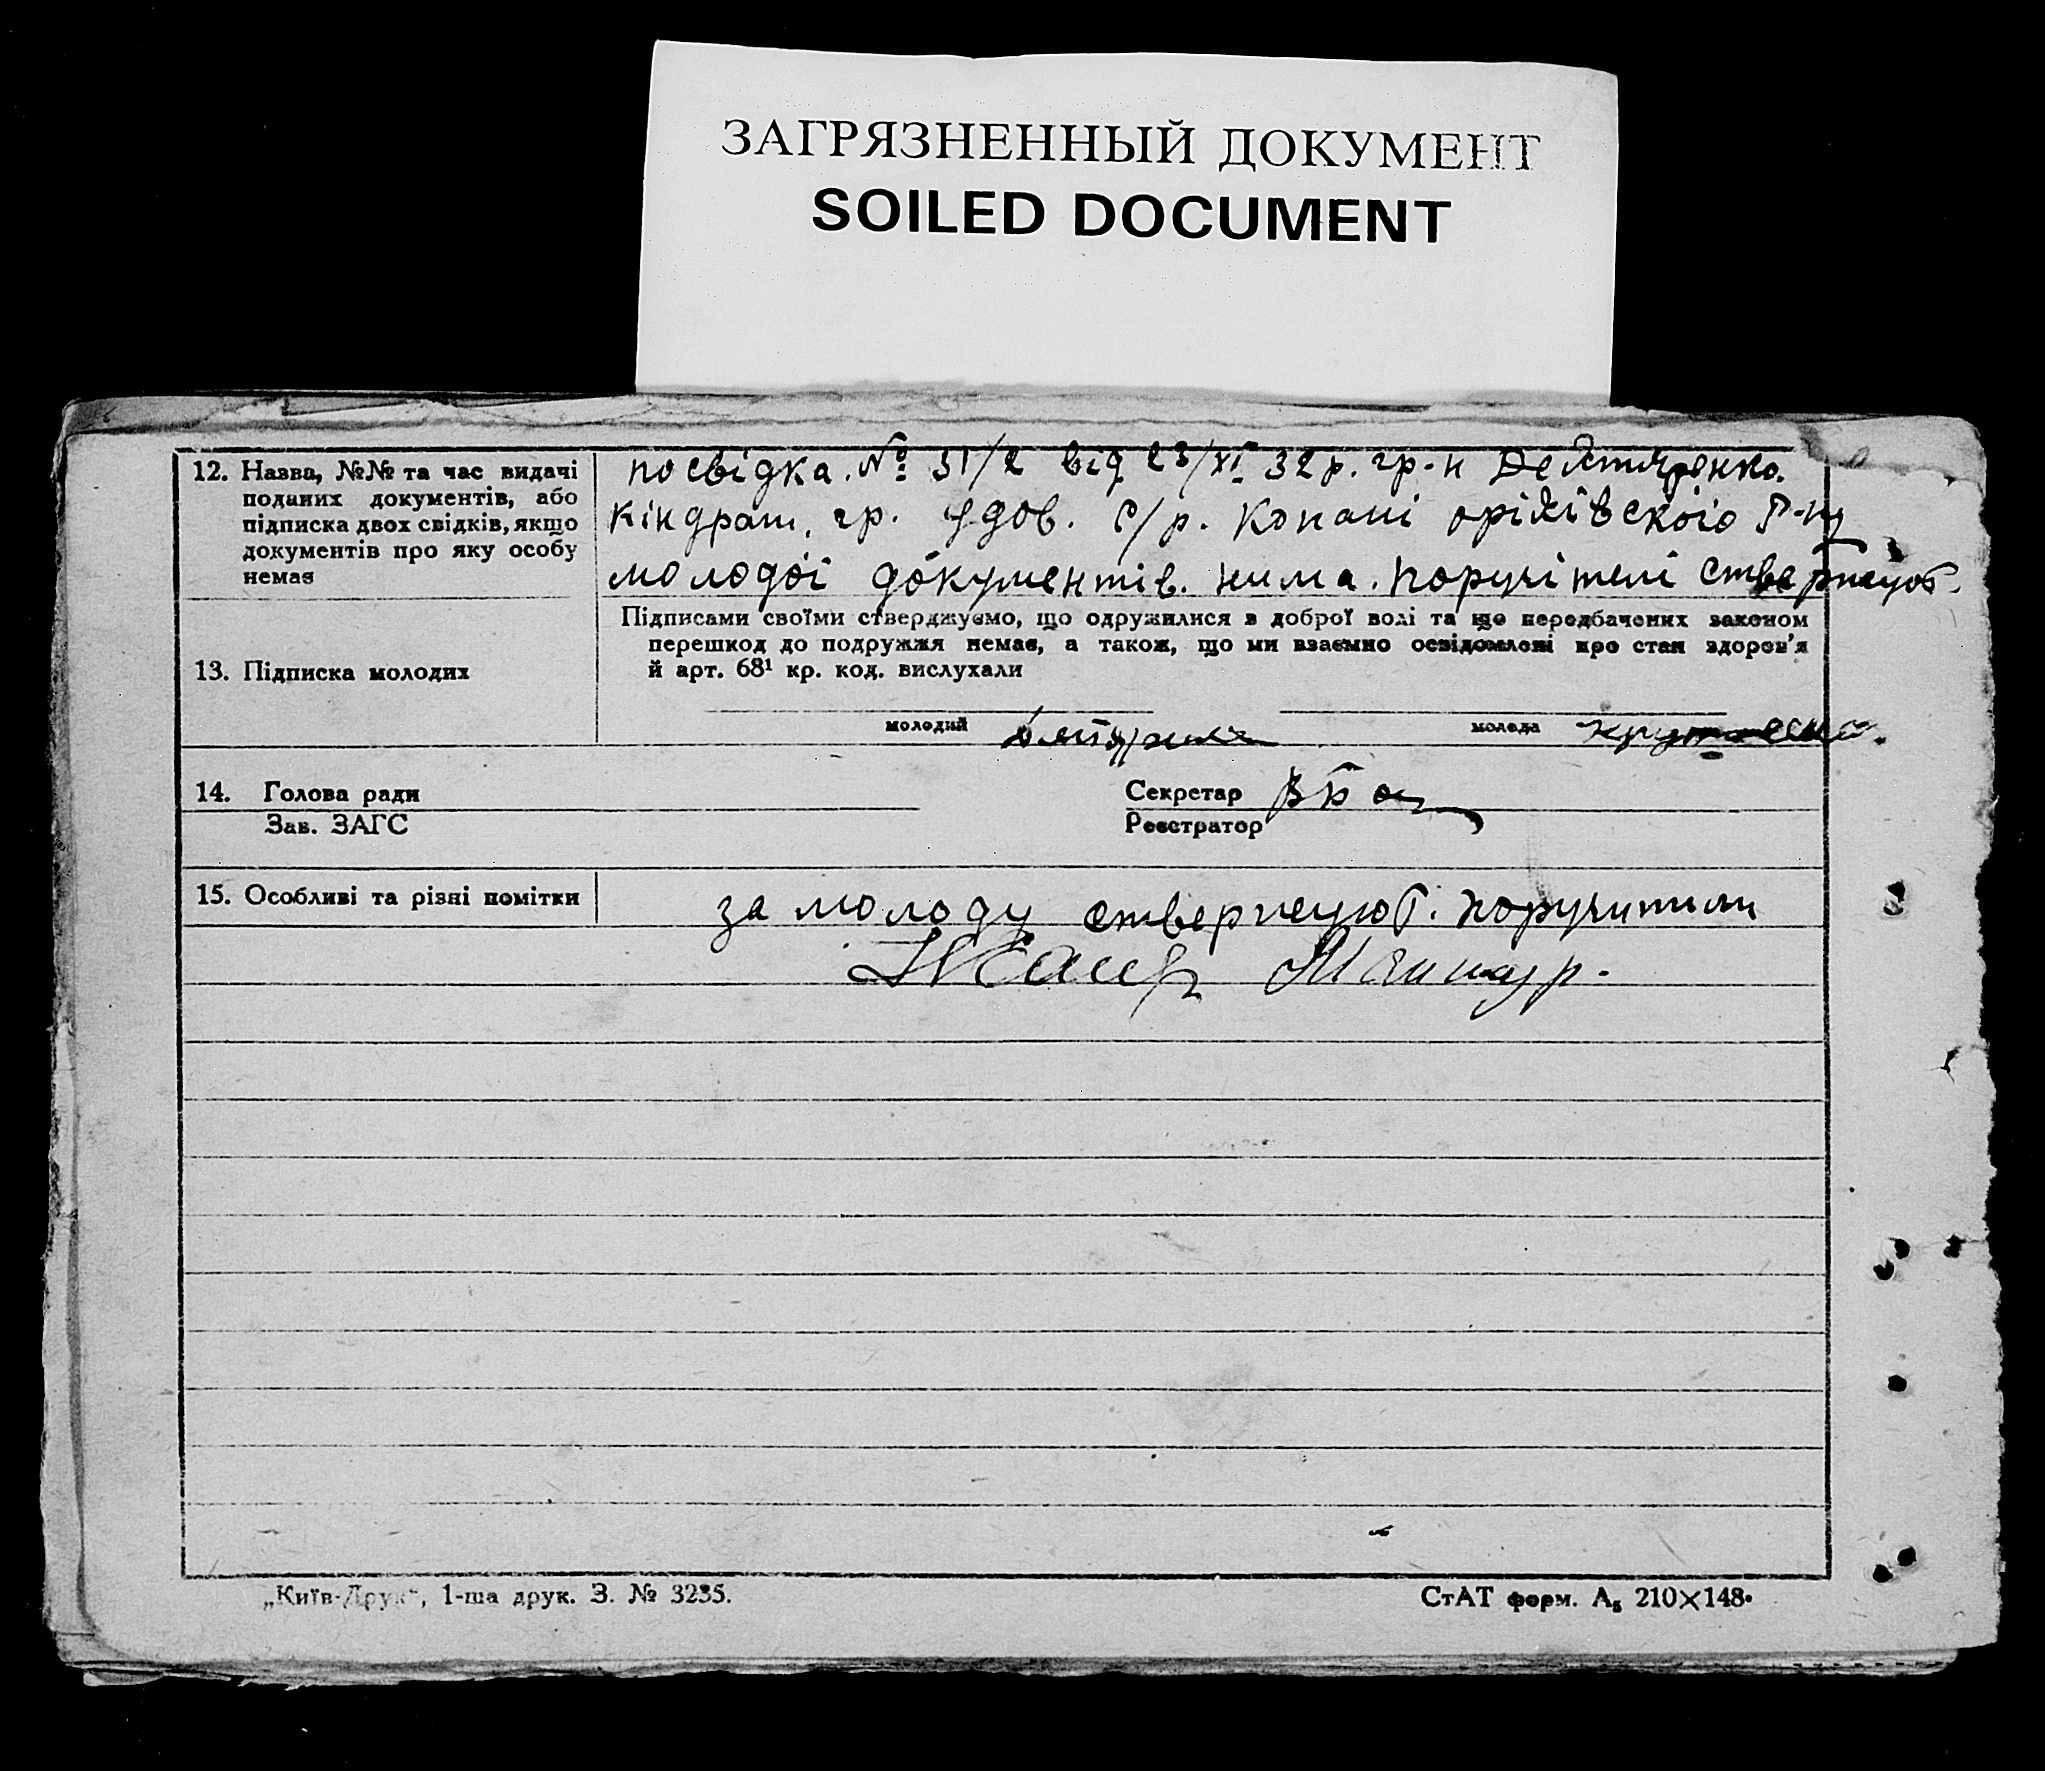 ЗАГРЯЗНЕННЫЙ ДОКУМЕНТ
SOILED DOCUMENT
12. Назва, №№ та час видачі поданих документів, або підписка двох свідків, якщо документів про яку особу немає
посвідка. № 31/2 від 23/XI 32 р. гр-н Дехтяренко.
Кіндрат, гр. удов. с/р. Копані оріхівскоіо р-ну
молодоі документів. нима. поручітелі стверпсуют.
13. Підписка молодих
Підписами своїми стверджуємо, що одружилися в доброї волі та що передбачених законом
перешкод до подружжя немає, а також, що ми взаємно освідомлені про стан здоров'я
й арт. 68¹ кр. код. вислухали
молодий
молода
14. Голова ради
Секретар
Зав. ЗАГС
Реєстратор
15. Особливі та різні помітки
за молоду стверпсуют. поручители
„Київ-Друк“, 1-ша друк. З. № 3235.
СтАТ форм. А₅ 210×148.